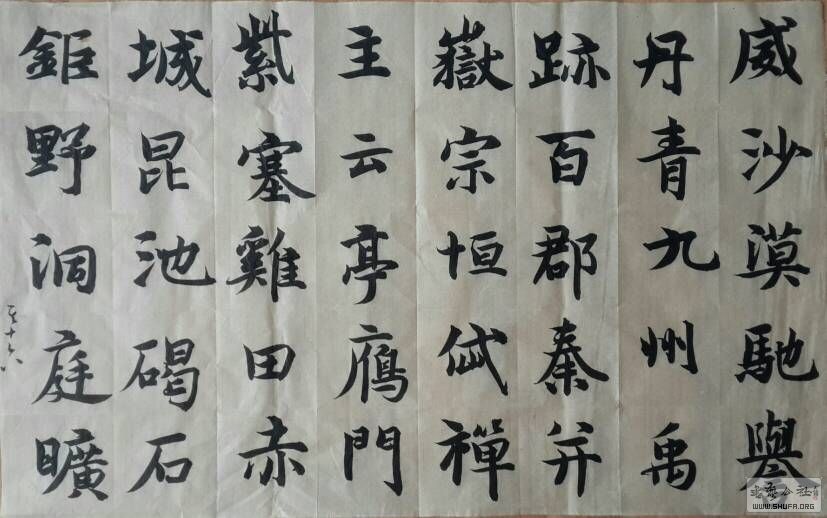 威沙漠馳譽
丹青九州禹
跡百郡秦并
嶽宗恒岱禪
主云亭鴈門
紫塞雞田赤
城昆池碣石
鉅野洞庭曠
十六
公社
WWW.SHUFA.ORG